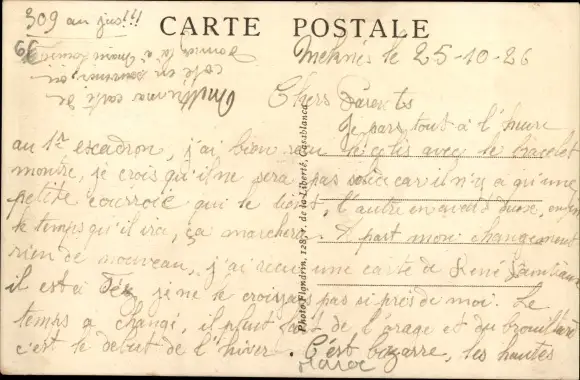 309 au jus!!!
CARTE POSTALE
Meknès le 25-10-26
Chers Parents
Je pars tout à l'heure
au 1er escadron, j'ai bien reçu le colis avec le bracelet
montre, je crois qu'il ne sera pas solide car il n'y a qu'une
petite courroie qui le tient, l'autre en avait deux, enfin
le temps qu'il ira, ça marchera. A part mon changement
rien de nouveau, j'ai reçu une carte de René
il est à Fez je ne le croyais pas si près de moi. Le
temps a changé, il pleut fait de l'orage et du brouillard
c'est le début de l'hiver. C'est bizarre, les hautes
Maroc
Photo Flandrin, 128, r. de la Liberté, Casablanca